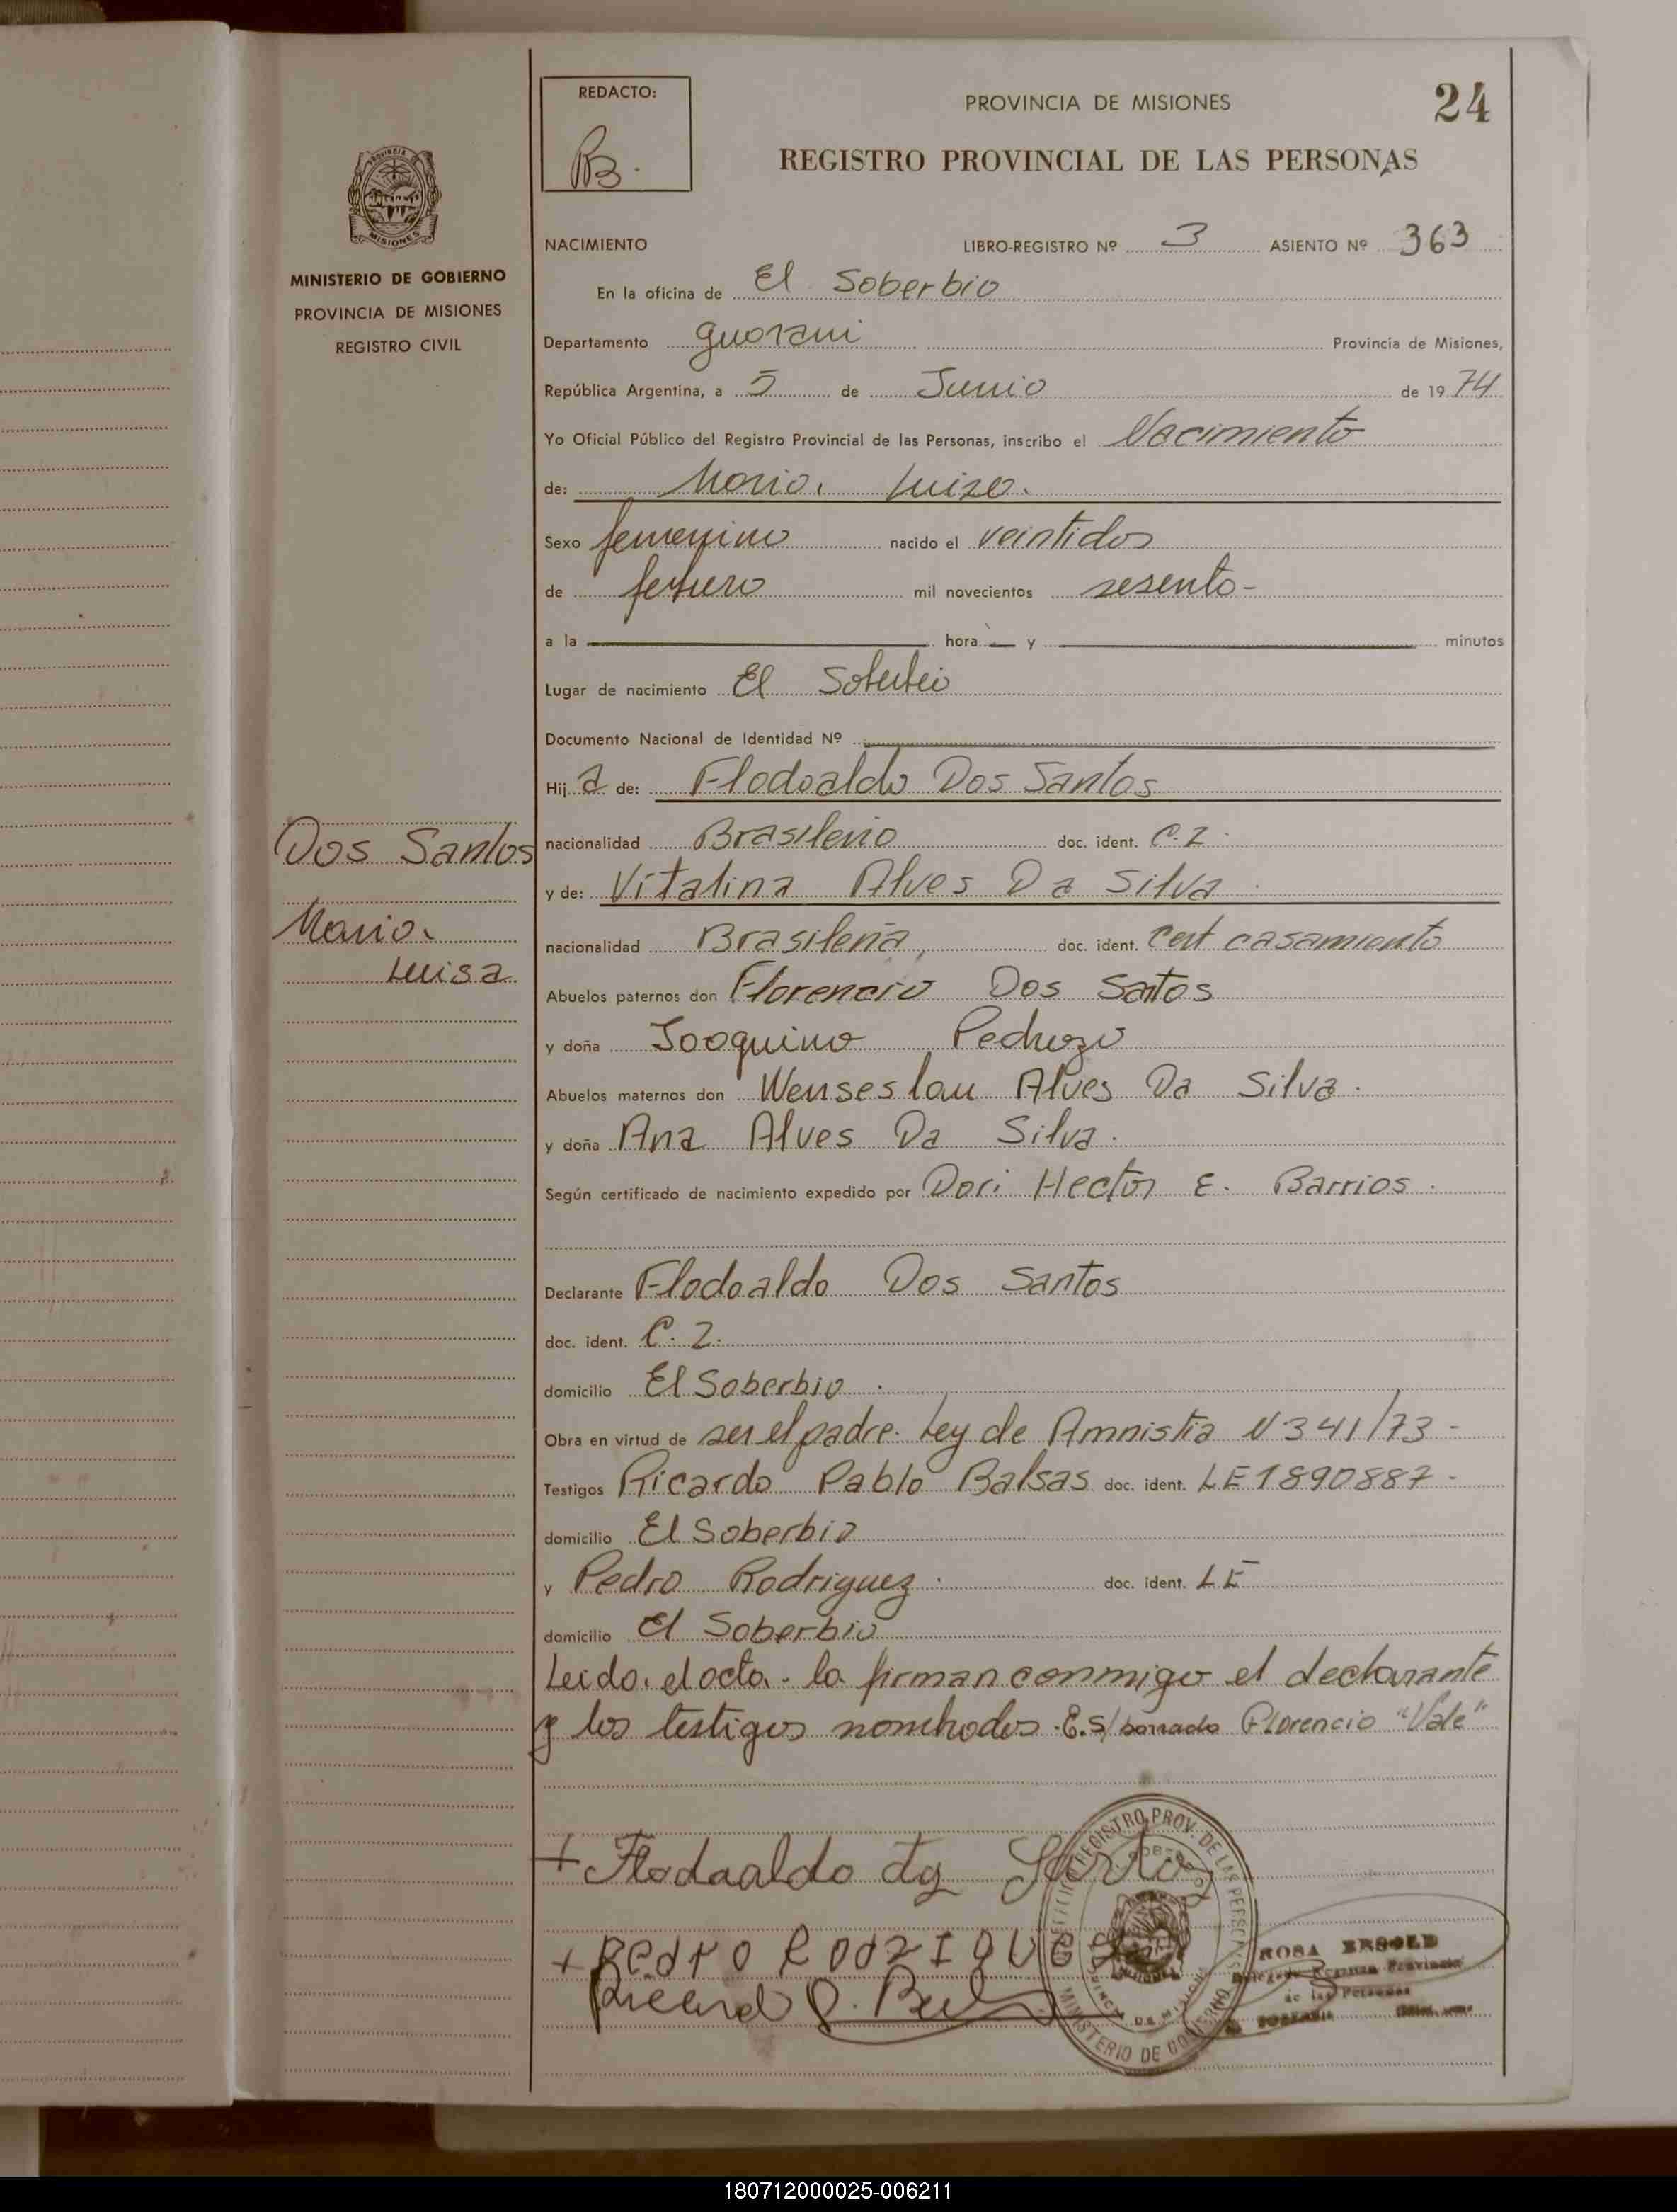 REDACTO:
RB.
PROVINCIA DE MISIONES
24
REGISTRO PROVINCIAL DE LAS PERSONAS
PROVINCIA
MISIONES
MINISTERIO DE GOBIERNO
PROVINCIA DE MISIONES
REGISTRO CIVIL
NACIMIENTO LIBRO-REGISTRO Nº 3 ASIENTO Nº 363
En la oficina de El Soberbio
Departamento Guarani Provincia de Misiones,
República Argentina, a 5 de Junio de 1974
Yo Oficial Público del Registro Provincial de las Personas, inscribo el Nacimiento
de: Maria Luisa.
Sexo femenino nacido el veintidos
de febrero mil novecientos sesenta-
a la hora y minutos
Lugar de nacimiento El Soberbio
Documento Nacional de Identidad Nº
Hija de: Flodoaldo Dos Santos
Dos Santos
Maria
Luisa
nacionalidad Brasileño doc. ident. C.I.
y de: Vitalina Alves Da Silva.
nacionalidad Brasileña, doc. ident. Cert casamiento
Abuelos paternos don Florencio Dos Satos
y doña Joaquina Pedrozo
Abuelos maternos don Wenseslau Alves Da Silva.
y doña Ana Alves Da Silva.
Según certificado de nacimiento expedido por Dori Hector E. Barrios.
Declarante Flodoaldo Dos Santos
doc. ident. C.I.
domicilio El Soberbio.
Obra en virtud de ser el padre. Ley de Amnistia N 341/73-
Testigos Ricardo Pablo Balsas doc. ident. LE 1890887-
domicilio El Soberbio
y Pedro Rodriguez. doc. ident. LE
domicilio El Soberbio
Leida el acta. la firman conmigo el declarante
y los testigos nombrados. E.S/borrado Florencio "Vale"
+ Flodaaldo dos Santos
+ Pedro Rodriques
REGISTRO PROV. DE LAS PERSONAS
MINISTERIO DE GOBIERNO
ROSA
180712000025-006211